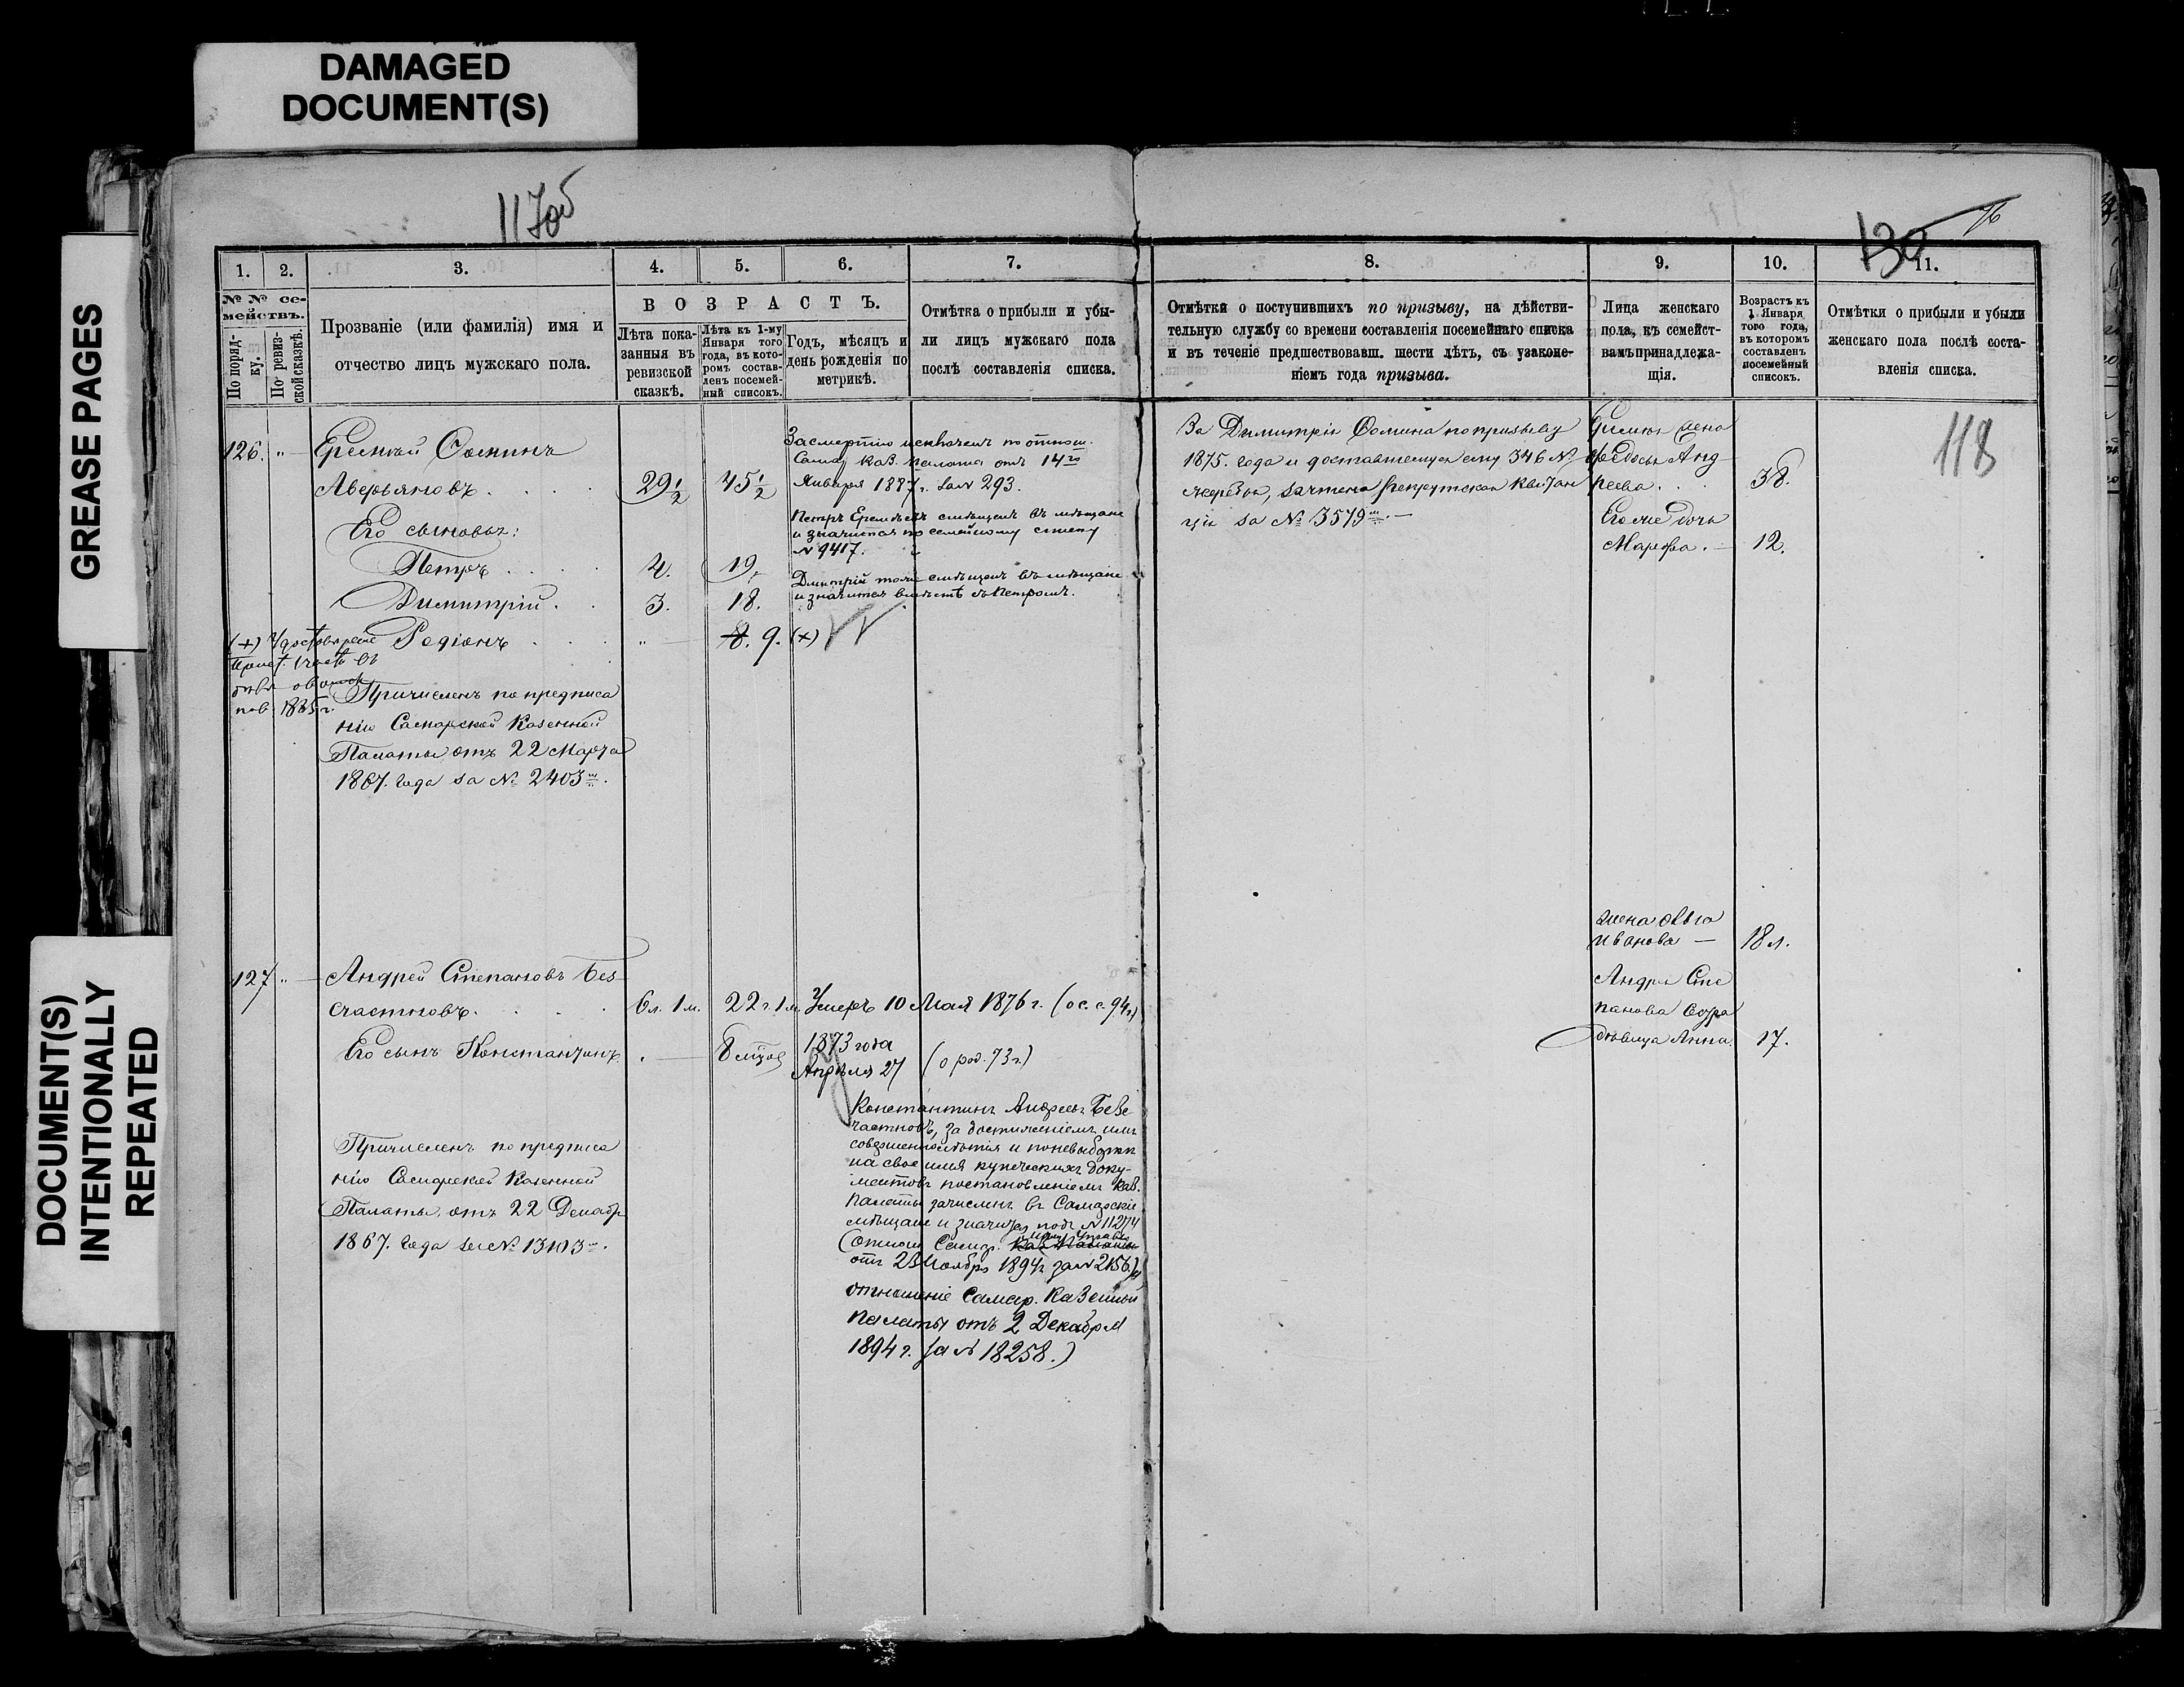 DAMAGED
DOCUMENT(S)
GREASE PAGES
DOCUMENT(S)
INTENTIONALLY
REPEATED
117об
130
76
118
1.
2.
3.
4.
5.
6.
7.
№ № се-
мействъ.
По поряд-
ку.
По ревиз-
ской сказкѣ.
Прозваніе (или фамилія) имя и
отчество лицъ мужскаго пола.
ВОЗРАСТЪ.
Лѣта пока-
занныя въ
ревизской
сказкѣ.
Лѣта къ 1-му
Января того
года, въ кото-
ромъ состав-
ленъ посемей-
ный списокъ.
Годъ, мѣсяцъ и
день рожденія по
метрикѣ.
Отмѣтка о прибыли и убы-
ли лицъ мужскаго пола
послѣ составленія списка.
8.
9.
10.
11.
Отмѣтки о поступившихъ по призыву, на дѣйстви-
тельную службу со времени составленія посемейнаго списка
и въ теченіе предшествовавш. шести лѣтъ, съ узаконе-
ніемъ года призыва.
Лица женскаго
пола, къ семейст-
вамъ принадлежа-
щія.
Возрастъ къ
1 Января
того года,
въ которомъ
составленъ
посемейный
списокъ.
Отмѣтки о прибыли и убыли
женскаго пола послѣ соста-
вленія списка.
126. " Еремѣй Ѳоминъ
Аверьяновъ 29½ 45½
Его сыновья:
Петръ 4. 19.
Димитрій 3. 18.
Родіонъ " 8. 9. (×)
(+)
1885 г.
Причисленъ по предписа
нію Самарской Казенной
Палаты отъ 22 Марта
1867. года за № 2403.
За смертію исключенъ по отнош.
Самар. Каз. палаты отъ 14го
Января 1887 г. за № 293.
Петръ Еремѣевъ смѣщенъ въ мѣщане
и значится по семейному списку
№ 9417.
Дмитрій тоже смѣщенъ въ мѣщане
и значится вмѣстѣ съ Петромъ.
За Димитрія Ѳомина по призыву
1875. года и доставшемуся ему 346 №
жеребью, зачтена рекрутская квитан
ція за № 3579.
жена
Ѳедосья Анд
реева. 38.
Его же дочь
Марфа. 12.
127 " Андрей Степановъ Без
счастновъ. 6 л. 1 м. 22 г. 1 м. Умеръ 10 Мая 1876 г. (о с. с. 94 г)
Его сынъ Константинъ 8 мѣс 1873 года
Апрѣля 27 (о род. 73 г.)
Причисленъ по предписа
нію Самарской Казенной
Палаты, отъ 22 Декабр
1867. года за № 13103.
Константинъ Андреевъ Безс
частновъ, за достиженіемъ имъ
совершеннолѣтія и по невыборкѣ
на свое имя купеческихъ доку-
ментовъ постановленіемъ Каз.
Палаты зачисленъ въ Самарскіе
мѣщане и значится подъ № 11274
(отнош Самар. Каз Палаты
отъ 23 Ноября 1894 г за № 2156.) и
отношеніе Самар. Казенной
Палаты отъ 2 Декабря
1894 г. за № 18258.)
жена Ольга
Иванова — 18 л.
Андрея Сте
панова Сестра
дѣвица Анна. 17.